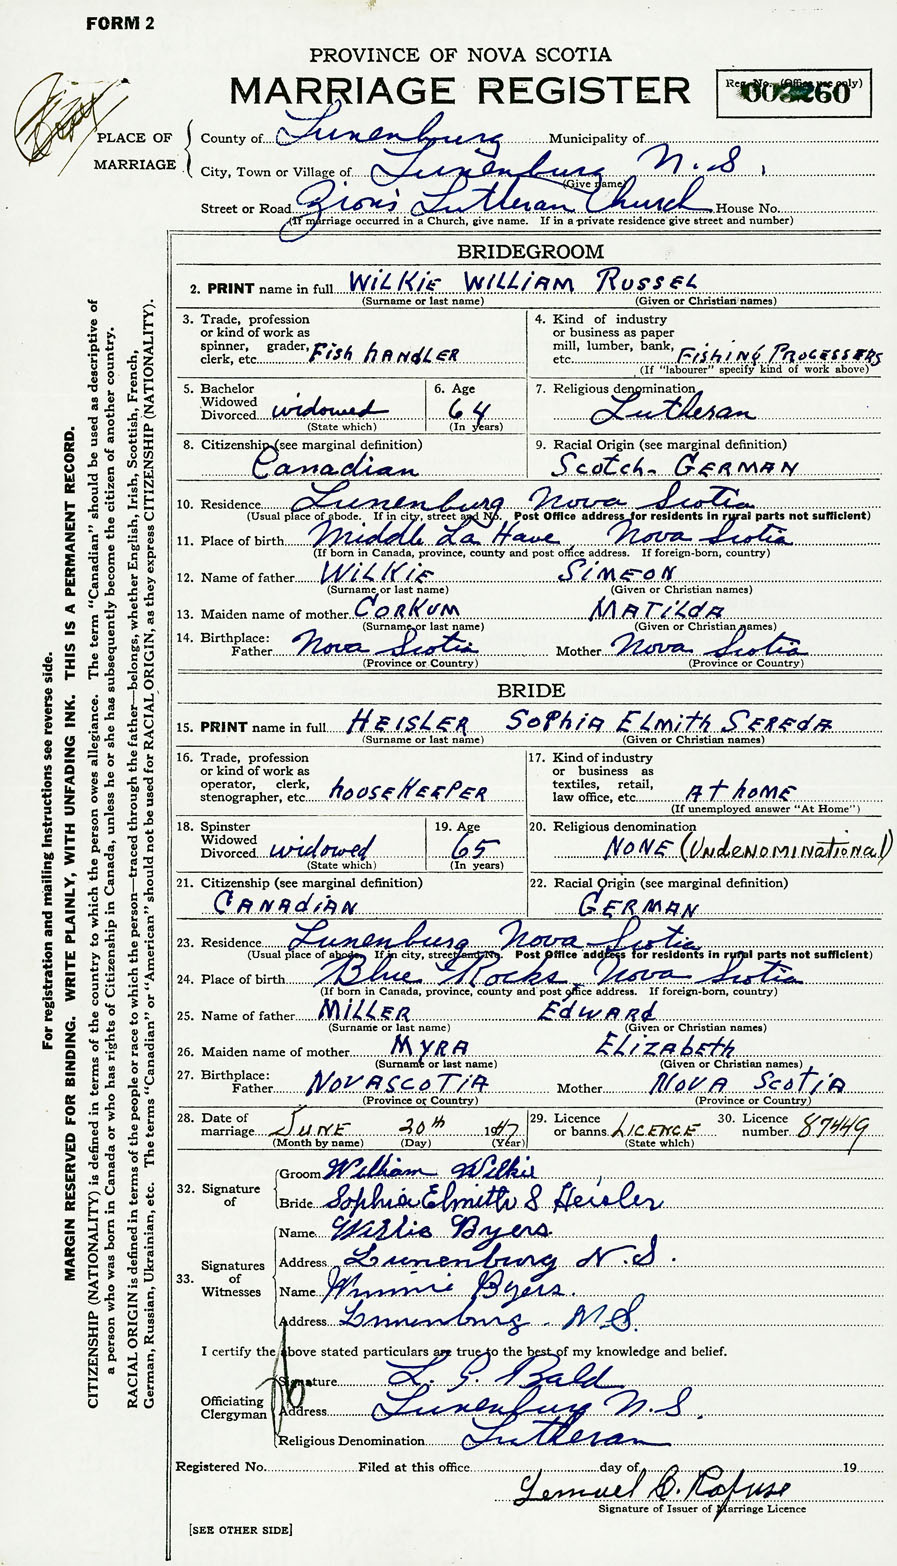 FORM 2
PROVINCE OF NOVA SCOTIA
MARRIAGE REGISTER
Reg. No. (Office use only)
003260
PLACE OF MARRIAGE
County of Lunenburg Municipality of
City, Town or Village of Lunenburg N.S.
(Give name)
Street or Road Zion's Lutheran Church House No.
(If marriage occurred in a Church, give name. If in a private residence give street and number)
BRIDEGROOM
2. PRINT name in full WILKIE WILLIAM RUSSEL
(Surname or last name) (Given or Christian names)
3. Trade, profession
or kind of work as
spinner, grader,
clerk, etc. FISH HANDLER
4. Kind of industry
or business as paper
mill, lumber, bank,
etc. FISHING PROCESSERS
(If "labourer" specify kind of work above)
5. Bachelor
Widowed
Divorced widowed
(State which)
6. Age
64
(In years)
7. Religious denomination
Lutheran
8. Citizenship (see marginal definition)
Canadian
9. Racial Origin (see marginal definition)
SCOTCH- GERMAN
10. Residence Lunenburg Nova Scotia
(Usual place of abode. If in city, street and No. Post Office address for residents in rural parts not sufficient)
11. Place of birth Middle La Have Nova Scotia
(If born in Canada, province, county and post office address. If foreign-born, country)
12. Name of father WILKIE SIMEON
(Surname or last name) (Given or Christian names)
13. Maiden name of mother CORKUM MATILDA
(Surname or last name) (Given or Christian names)
14. Birthplace:
Father Nova Scotia Mother Nova Scotia
(Province or Country) (Province or Country)
BRIDE
15. PRINT name in full HEISLER SOPHIA ELMITH SEREDA
(Surname or last name) (Given or Christian names)
16. Trade, profession
or kind of work as
operator, clerk,
stenographer, etc. HOUSEKEEPER
17. Kind of industry
or business as
textiles, retail,
law office, etc. AT HOME
(If unemployed answer "At Home")
18. Spinster
Widowed
Divorced widowed
(State which)
19. Age
65
(In years)
20. Religious denomination
NONE (UNDENOMINATIONAL)
21. Citizenship (see marginal definition)
CANADIAN
22. Racial Origin (see marginal definition)
GERMAN
23. Residence Lunenburg Nova Scotia
(Usual place of abode. If in city, street and No. Post Office address for residents in rural parts not sufficient)
24. Place of birth Blue Rocks, Nova Scotia
(If born in Canada, province, county and post office address. If foreign-born, country)
25. Name of father MILLER EDWARD
(Surname or last name) (Given or Christian names)
26. Maiden name of mother MYRA ELIZABETH
(Surname or last name) (Given or Christian names)
27. Birthplace:
Father NOVA SCOTIA Mother NOVA SCOTIA
(Province or Country) (Province or Country)
28. Date of
marriage JUNE 20th 1947
(Month by name) (Day) (Year)
29. Licence
or banns LICENCE
(State which)
30. Licence
number 87449
32. Signature of
Groom William Wilkie
Bride Sophia Elmith S Heisler
33. Signatures of Witnesses
Name Willis Byers
Address Lunenburg N.S.
Name Winnie Byers.
Address Lunenburg. N.S.
I certify the above stated particulars are true to the best of my knowledge and belief.
Officiating Clergyman
Signature L. G. Bald
Address Lunenburg N.S.
Religious Denomination Lutheran
Registered No. Filed at this office day of 19
Lemuel C. Rafuse
Signature of Issuer of Marriage Licence
[SEE OTHER SIDE]
For registration and mailing instructions see reverse side.
MARGIN RESERVED FOR BINDING. WRITE PLAINLY, WITH UNFADING INK. THIS IS A PERMANENT RECORD.
CITIZENSHIP (NATIONALITY) is defined in terms of the country to which the person owes allegiance. The term "Canadian" should be used as descriptive of
a person who was born in Canada or who has rights of Citizenship in Canada, unless he or she has subsequently become the citizen of another country.
RACIAL ORIGIN is defined in terms of the people or race to which the person—traced through the father—belongs, whether English, Irish, Scottish, French,
German, Russian, Ukrainian, etc. The terms "Canadian" or "American" should not be used for RACIAL ORIGIN, as they express CITIZENSHIP (NATIONALITY).